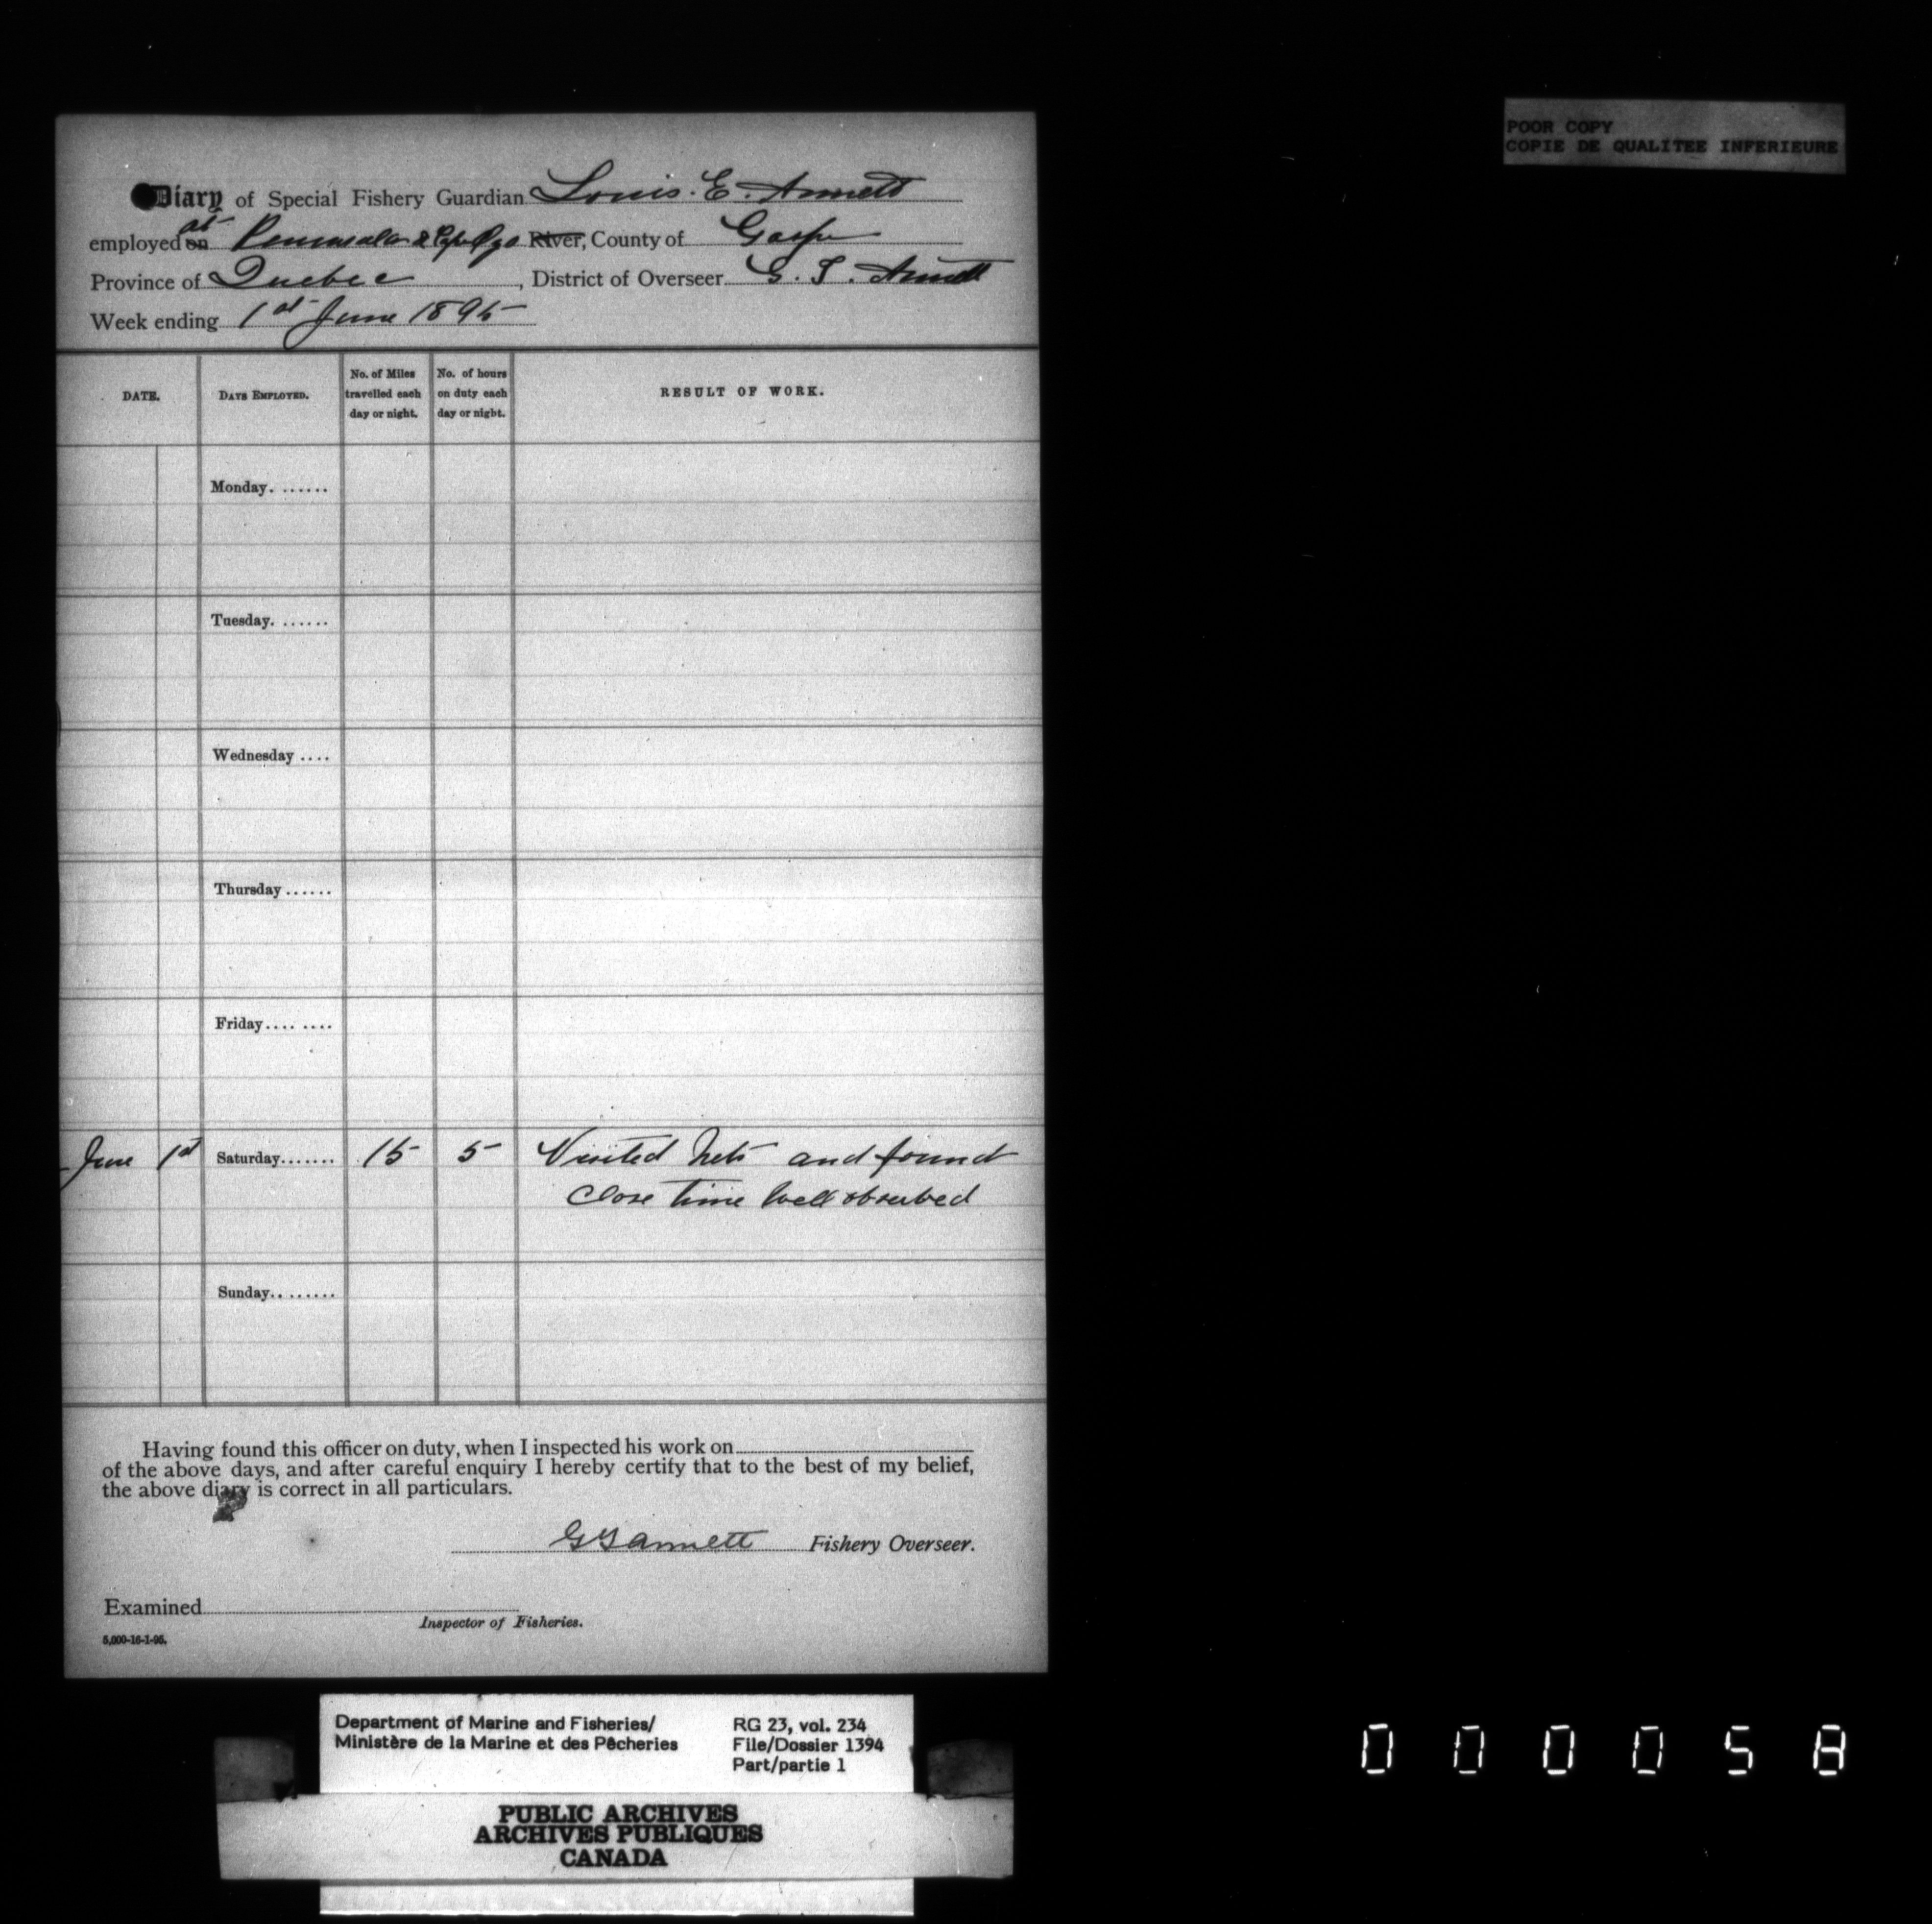 POOR COPY
COPIE DE QUALITEE INFERIEURE
Diary of Special Fishery Guardian Louis. E. Annett
employed on at Peninsula & Cape Ozo River, County of Gaspe
Province of Quebec, District of Overseer G. T. Annett
Week ending 1st June 1895
DATE. DAYS EMPLOYED. No. of Miles travelled each day or night. No. of hours on duty each day or night. RESULT OF WORK.
Monday.......
Tuesday.......
Wednesday....
Thursday......
Friday........
June 1st Saturday....... 15 5 Visited Nets and found
Close time well observed
Sunday........
Having found this officer on duty, when I inspected his work on
of the above days, and after careful enquiry I hereby certify that to the best of my belief,
the above diary is correct in all particulars.
G T Annett Fishery Overseer.
Examined
Inspector of Fisheries.
5,000-16-1-95.
Department of Marine and Fisheries/ RG 23, vol. 234
Ministère de la Marine et des Pêcheries File/Dossier 1394
Part/partie 1
PUBLIC ARCHIVES
ARCHIVES PUBLIQUES
CANADA
000058